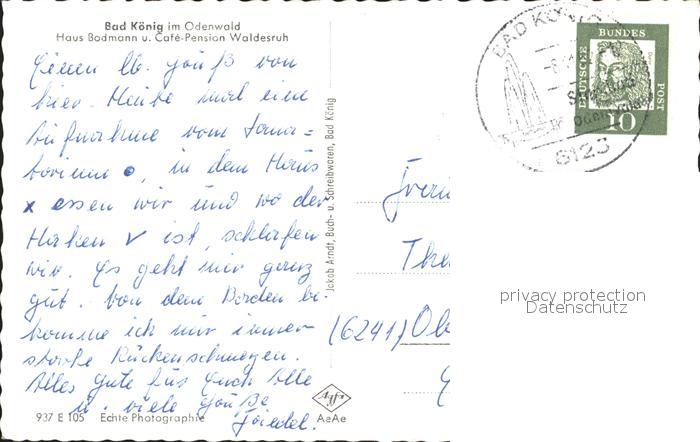 Bad König im Odenwald
Haus Badmann u. Café-Pension Waldesruh
Einen lb. Gruß von
hier. Heute mal eine
Aufnahme vom Sana=
torium o, in dem Haus
x essen wir und wo der
Haken v ist, schlafen
wir. Es geht mir ganz
gut. Von dem Baden be-
komme ich nur immer
starke Rückenschmerzen.
Alles Gute für Euch alle
u. viele Grüße
Friedel.
937 E 105 Echte Photographie
Jakob Arndt, Buch- u. Schreibwaren, Bad König
Agfa
AeAe
BAD KÖNIG
6123
DEUTSCHE BUNDES POST
10
(6241) Ob
privacy protection
Datenschutz